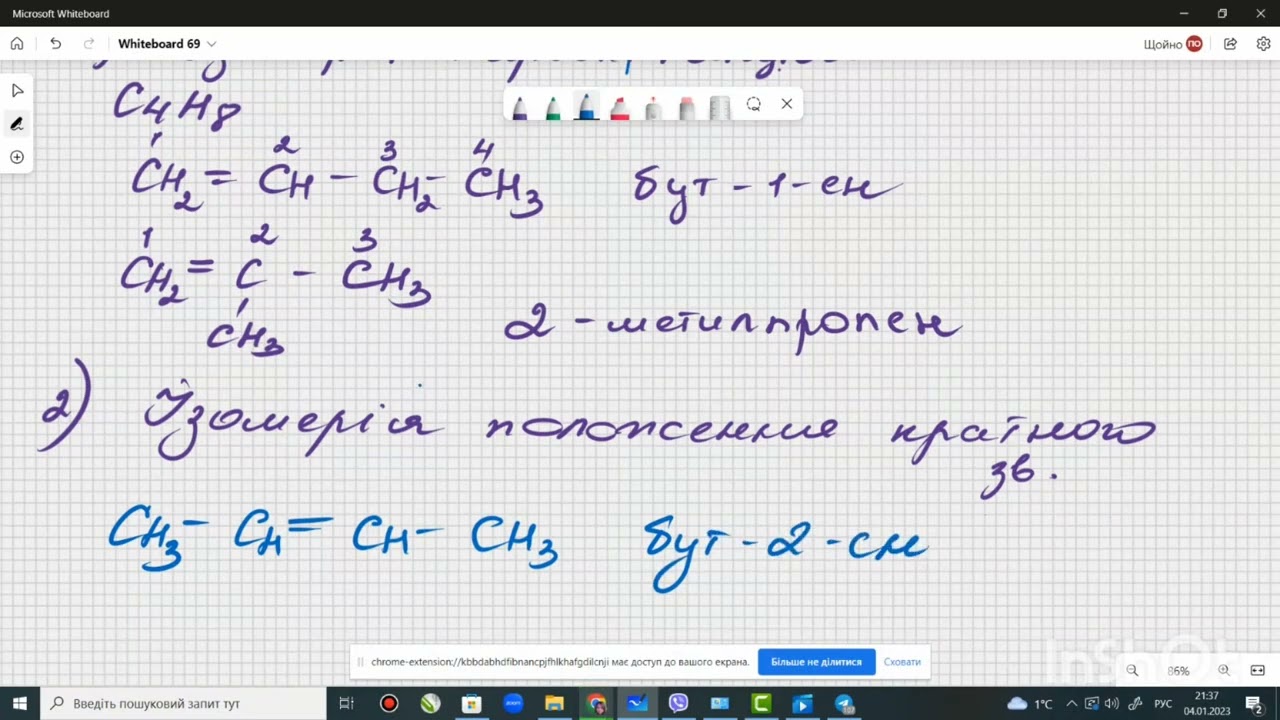 Microsoft Whiteboard
Whiteboard 69
Щойно ПО
C4H8
1 2 3 4
CH2 = CH - CH2 - CH3 бут - 1 - ен
1 2 3
CH2 = C - CH3
CH3
2 - метилпропен
2) Ізомерія положення кратного
зв.
CH3 - CH = CH - CH3 бут - 2 - ен
chrome-extension://kbbdabhdfibnancpjfhlkhafgdilcnji має доступ до вашого екрана. Більше не ділитися Сховати
InShOt
86%
Введіть пошуковий запит тут
zoom
1°C
РУС
21:37
04.01.2023
2